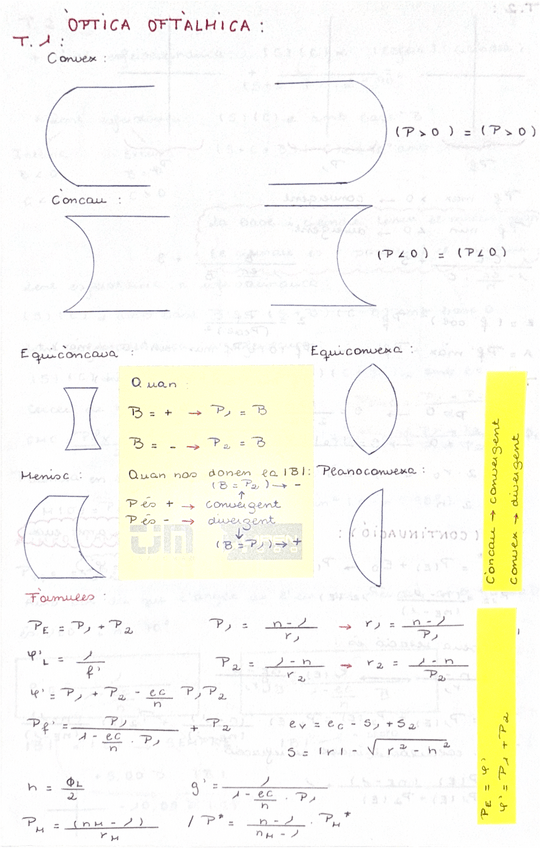 ÒPTICA OFTÀLMICA :
T. 1 :
Convex :
(P > 0) = (P > 0)
Còncau :
(P < 0) = (P < 0)
Equicòncava :
Equiconvexa :
Quan :
B = + → P₁ = B
B = - → P₂ = B
Menisc :
Quan nos donen ea |B| :
(B = P₂) → -
P és + → convergent
P és - → divergent
(B = P₁) → +
Planoconvexa :
Còncau → convergent
convex → divergent
Fórmules :
P_E = P₁ + P₂
P₁ = (n - 1) / r₁ → r₁ = (n - 1) / P₁
φ'_L = 1 / f'
P₂ = (1 - n) / r₂ → r₂ = (1 - n) / P₂
φ' = P₁ + P₂ - (ec / n) P₁ P₂
P_f' = P₁ / (1 - (ec / n) · P₁) + P₂
e_v = e_c - s₁ + s₂
S = |r| - √(r² - h²)
h = Φ_L / 2
g' = 1 / (1 - (ec / n) · P₁)
P_H = (n_H - 1) / r_H / P* = (n - 1) / (n_H - 1) · P_H*
P_E = φ'
φ' = P₁ + P₂